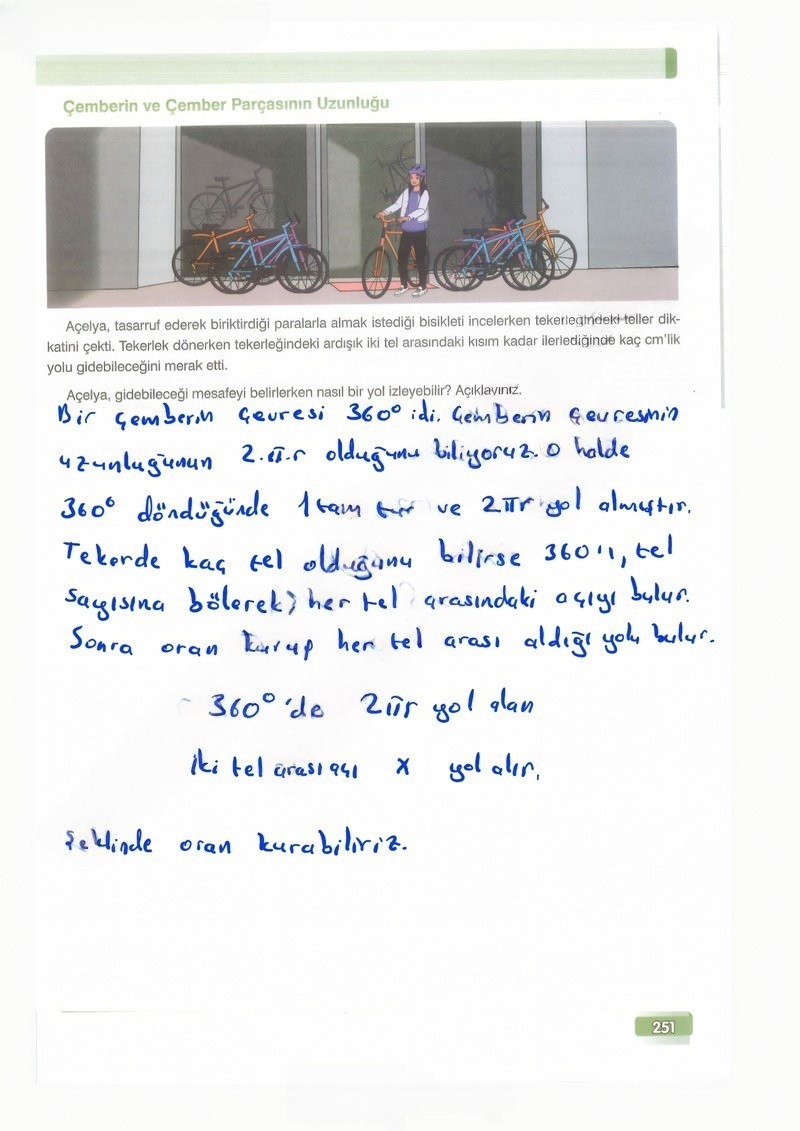 Çemberin ve Çember Parçasının Uzunluğu
Açelya, tasarruf ederek biriktirdiği paralarla almak istediği bisikleti incelerken tekerleğindeki teller dik-
katini çekti. Tekerlek dönerken tekerleğindeki ardışık iki tel arasındaki kısım kadar ilerlediğinde kaç cm'lik
yolu gidebileceğini merak etti.
Açelya, gidebileceği mesafeyi belirlerken nasıl bir yol izleyebilir? Açıklayınız.
Bir çemberin çevresi 360° idi. Çemberin çevresinin
uzunluğunun 2.π.r olduğunu biliyoruz. O halde
360° döndüğünde 1 tam tur ve 2πr yol almıştır.
Tekerde kaç tel olduğunu bilirse 360'ı, tel
sayısına bölerek) her tel arasındaki açıyı bulur.
Sonra oran kurup her tel arası aldığı yolu bulur.
360°'de 2πr yol alan
iki tel arası açı x yol alır,
Şeklinde oran kurabiliriz.
251